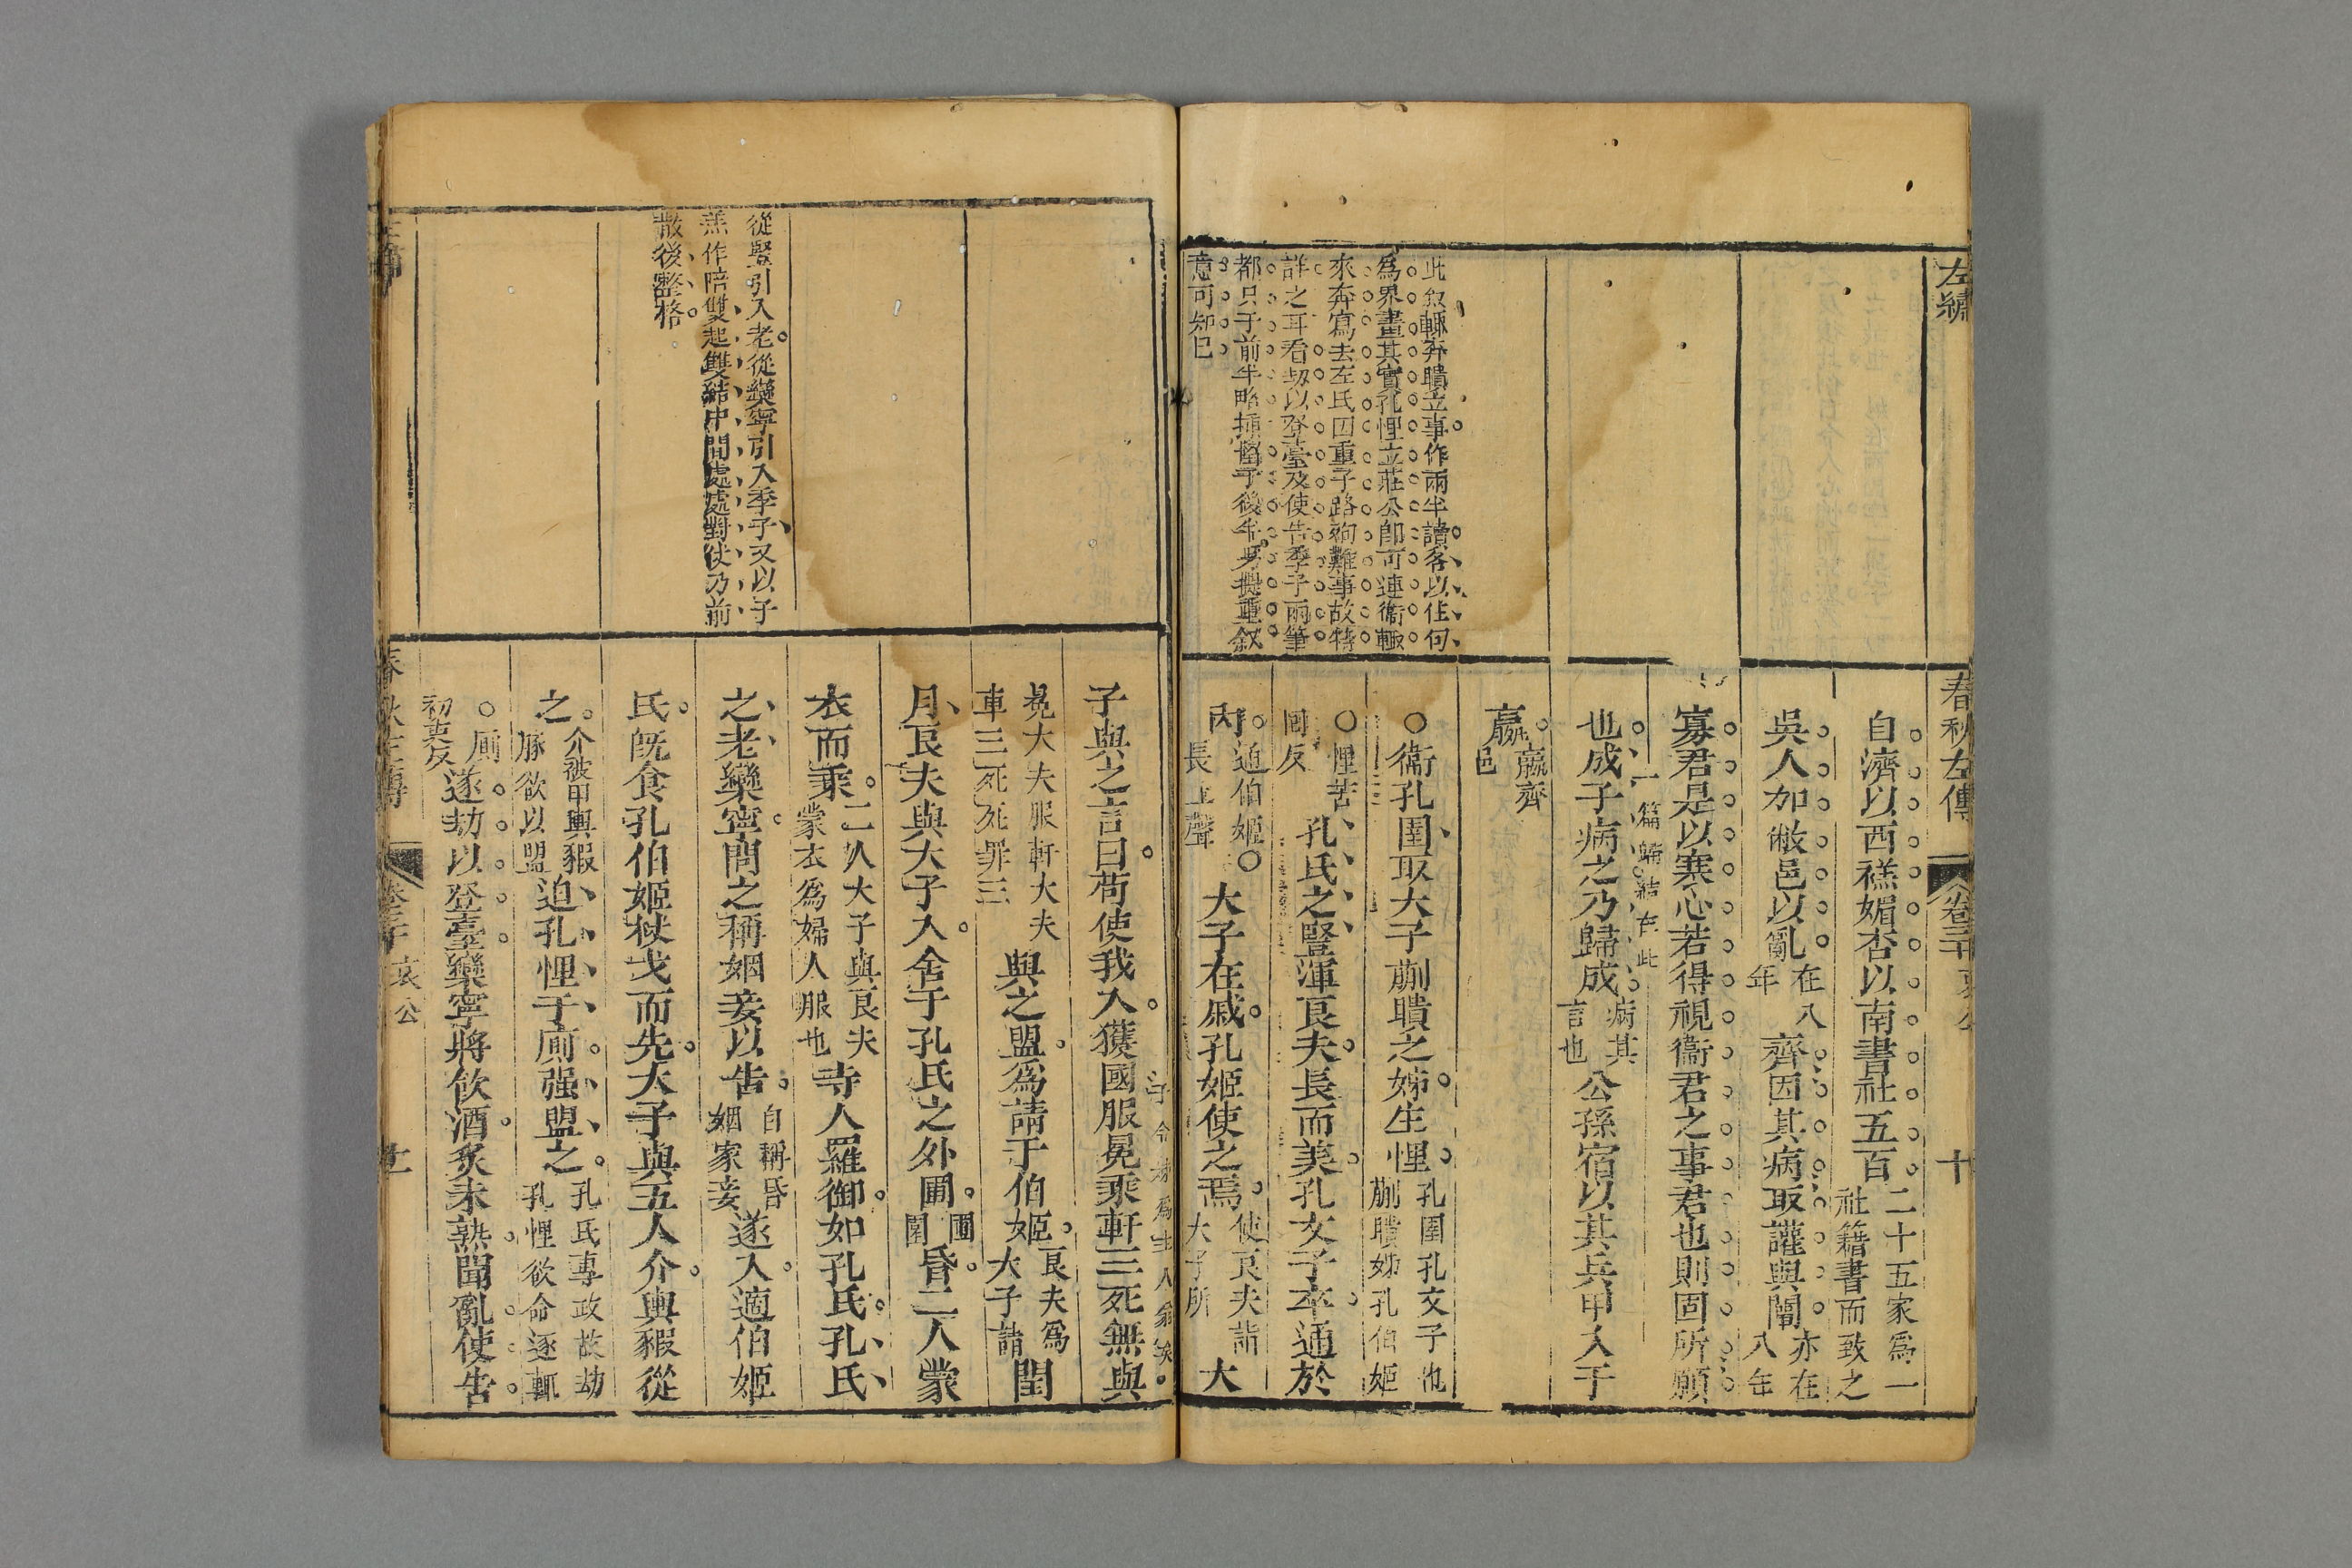 左繡
春秋左傳
卷三十 哀公
十
此叙輒奔聵立事作兩半讀客以住何
為界畫其實孔悝立莊公即可連衞輒
來奔寫去左氏因重子路殉難事故特
詳之耳看劫以登臺及使告季子兩筆
都只于前半略插留于後半另提重叙
意可知已
自濟以西禚媚杏以南書社五百二十五家為一社籍書而致之
吳人加敝邑以亂在八年齊因其病取讙與闡亦在八年
寡君是以寒心若得視衞君之事君也則固所願
一篇歸結在此
也成子病之乃歸成病其言也公孫宿以其兵甲入于
嬴嬴齊邑
○衞孔圉取大子蒯聵之姊生悝孔圉孔文子也蒯聵姊孔伯姬
○悝苦回反孔氏之豎渾良夫長而美孔文子卒通於
內通伯姬○長上聲大子在戚孔姬使之焉使良夫詣大子所大
子與之言曰苟使我入獲國服冕乘軒三死無與
冕大夫服軒大夫車三死死罪三與之盟為請于伯姬良夫為大子請閏
月良夫與大子入舍于孔氏之外圃圃園昏二人蒙
衣而乘二人大子與良夫蒙衣為婦人服也寺人羅御如孔氏孔氏
之老欒寧問之稱姻妾以告自稱昏姻家妾遂入適伯姬
氏既食孔伯姬杖戈而先大子與五人介輿豭從
之介被甲輿豭豚欲以盟迫孔悝于廁强盟之孔氏專政故劫孔悝欲命逐輒
○廁初吏反遂劫以登臺欒寧將飲酒炙未熟聞亂使告
從豎引入老從欒寧引入季子又以子
羔作陪雙起雙結中間處處對使乃前
散後整格
春秋左傳
卷三十 哀公
十一